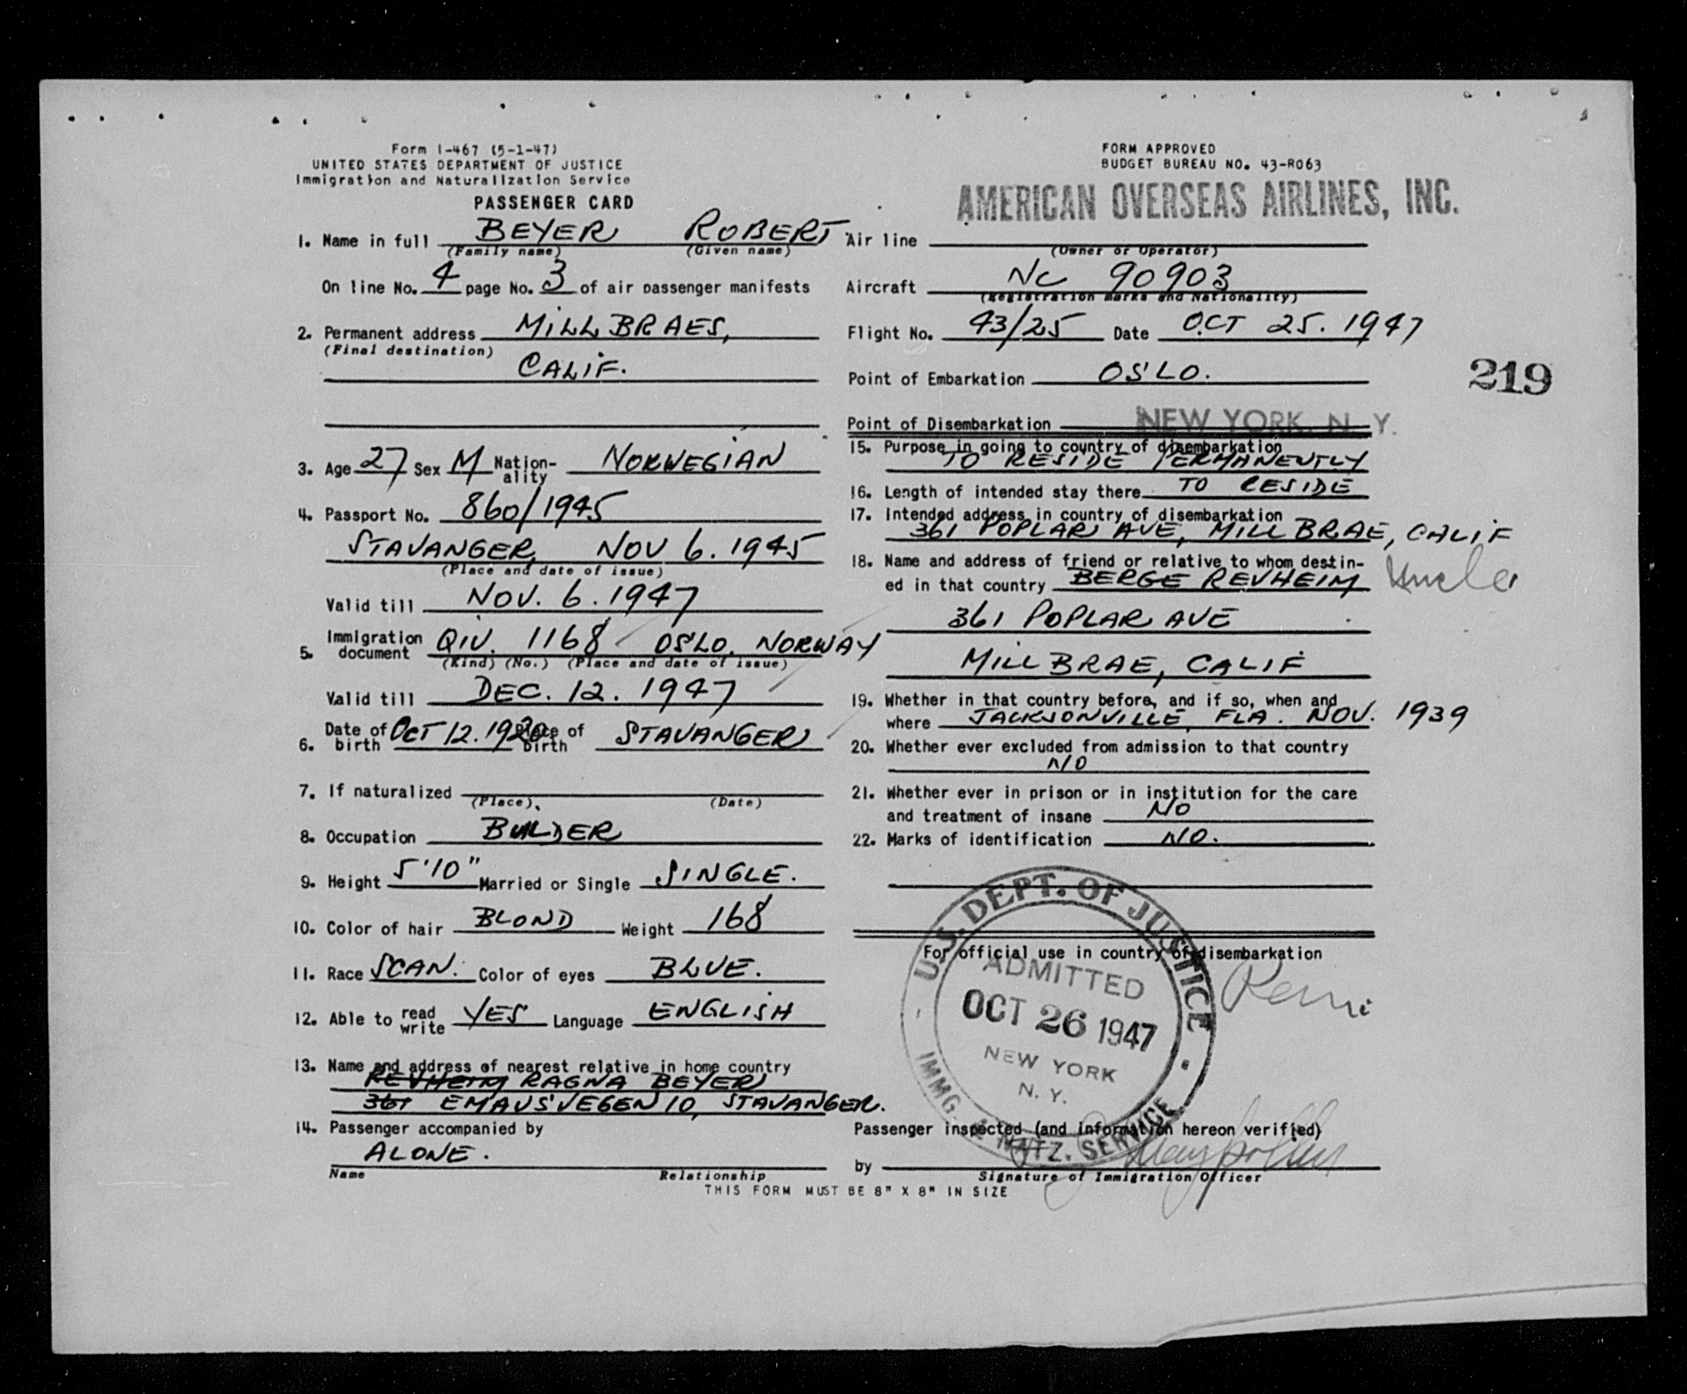 Form I-467 (5-1-47)
UNITED STATES DEPARTMENT OF JUSTICE
Immigration and Naturalization Service
PASSENGER CARD
1. Name in full BEYER ROBERT
(Family name) (Given name)
On line No. 4 page No. 3 of air passenger manifests
2. Permanent address MILLBRAES,
(Final destination)
CALIF.
3. Age 27 Sex M Nation-ality NORWEGIAN
4. Passport No. 860/1945
STAVANGER, NOV 6. 1945
(Place and date of issue)
Valid till NOV. 6. 1947
5. Immigration document QIV. 1168 OSLO. NORWAY
(Kind) (No.) (Place and date of issue)
Valid till DEC. 12. 1947
6. Date of birth OCT 12. 1920 Place of birth STAVANGER
7. If naturalized
(Place) (Date)
8. Occupation BUILDER
9. Height 5'10" Married or Single SINGLE.
10. Color of hair BLOND Weight 168
11. Race SCAN. Color of eyes BLUE.
12. Able to read write YES Language ENGLISH
13. Name and address of nearest relative in home country
REVHEIM RAGNA BEYER
361 EMAUSVEGEN 10, STAVANGER.
14. Passenger accompanied by
ALONE.
Name Relationship
THIS FORM MUST BE 8" X 8" IN SIZE
FORM APPROVED
BUDGET BUREAU NO. 43-R063
AMERICAN OVERSEAS AIRLINES, INC.
Air line
(Owner or Operator)
Aircraft NC 90903
(Registration marks and Nationality)
Flight No. 43/25 Date OCT 25. 1947
Point of Embarkation OSLO.
219
Point of Disembarkation NEW YORK, N. Y.
15. Purpose in going to country of disembarkation
TO RESIDE PERMANENTLY
16. Length of intended stay there TO RESIDE
17. Intended address in country of disembarkation
361 POPLAR AVE, MILL BRAE, CALIF
18. Name and address of friend or relative to whom destin-
ed in that country BERGE REVHEIM Uncle
361 POPLAR AVE
MILL BRAE, CALIF
19. Whether in that country before, and if so, when and
where JACKSONVILLE, FLA. NOV. 1939
20. Whether ever excluded from admission to that country
NO
21. Whether ever in prison or in institution for the care
and treatment of insane NO
22. Marks of identification NO.
For official use in country of disembarkation
U.S. DEPT. OF JUSTICE
ADMITTED
OCT 26 1947
NEW YORK
N. Y.
IMMG. & NATZ. SERVICE
Passenger inspected (and information hereon verified)
by
Signature of Immigration Officer